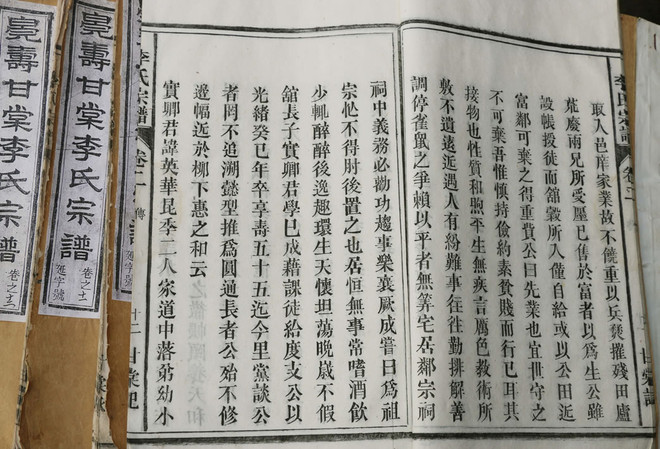 取入邑庠家業故不饒重以兵燹摧殘田廬
荒慶兩兄所受廛已售於富者以為生公雖
設帳授徒而舘穀所入僅自給或以公田近
富鄰可棄之得重貲公曰先業也宜世守之
不可棄吾惟慎持儉約素貧賤而行已耳其
接物也性質和煦平生無疾言厲色教術所
敷不遺遠近遇人有紛難事往往勤排解善
調停雀鼠之爭賴以平者無筭宅居鄰宗祠
祠中義務必勸功趨事樂襄厥成嘗曰為祖
宗忙不得肘後置之也居恒無事常嗜酒飲
少輒醉醉後逸趣環生天懷坦蕩晚歲不假
舘長子實卿君學已成藉課徒給度支公以
光緒癸巳年卒享壽五十五迄今里黨談公
者罔不追溯懿型推為圓通長者公殆不修
邊幅近於柳下惠之和云
實卿君諱英華昆季二人家道中落弟幼小
李氏宗譜
卷之二
傳
十二
甘棠記
李氏宗譜
甘棠記
甘棠李氏宗譜
卷之十二
甘棠李氏宗譜
卷之
字號